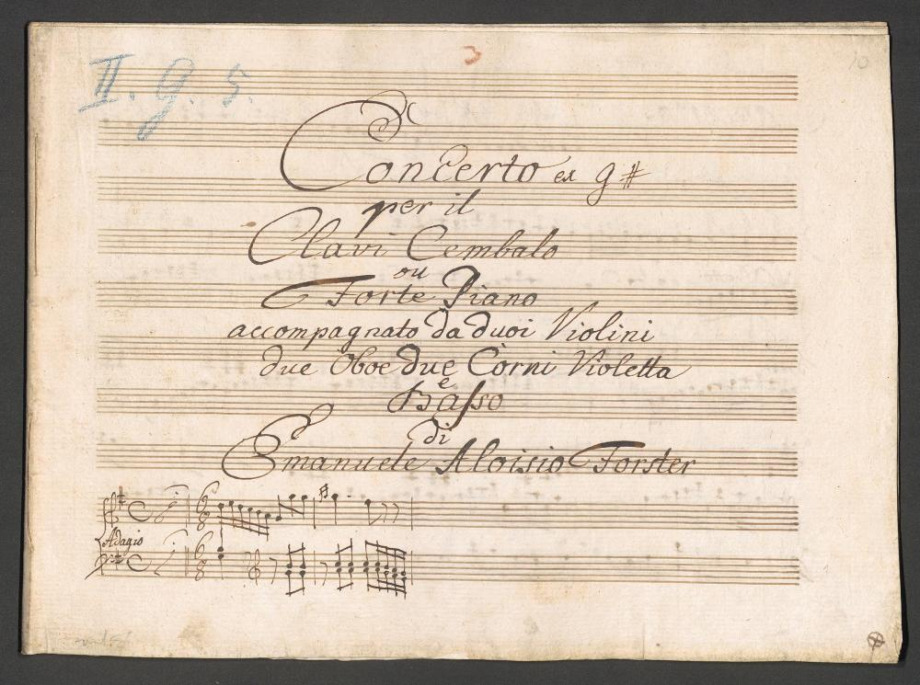 II. g. 5.
Concerto ex g#
per il
Clavi Cembalo
ou
Forte Piano
accompagnato da duoi Violini
due Oboe due Corni Violetta
e
Basso
di
Emanuele Aloisio Forster
6
8
Adagio
6
8